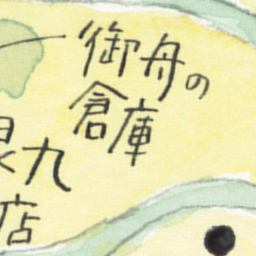 御舟の
倉庫
九
店